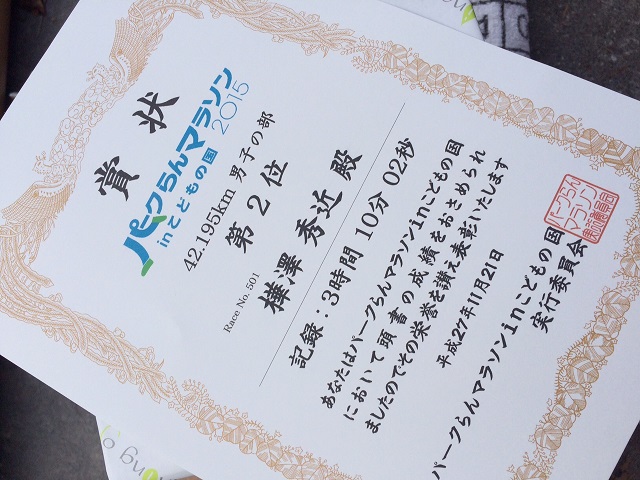 賞状
パークらんマラソン
inこどもの国 2015
42.195km 男子の部
第2位
Race No. 501
樺澤 秀近 殿
記録：3時間 10分 02秒
あなたはパークらんマラソンinこどもの国
において頭書の成績をおさめられ
ましたのでその栄誉を讃え表彰いたします
平成27年11月21日
パークらんマラソンinこどもの国
実行委員会
パークらん
マラソン